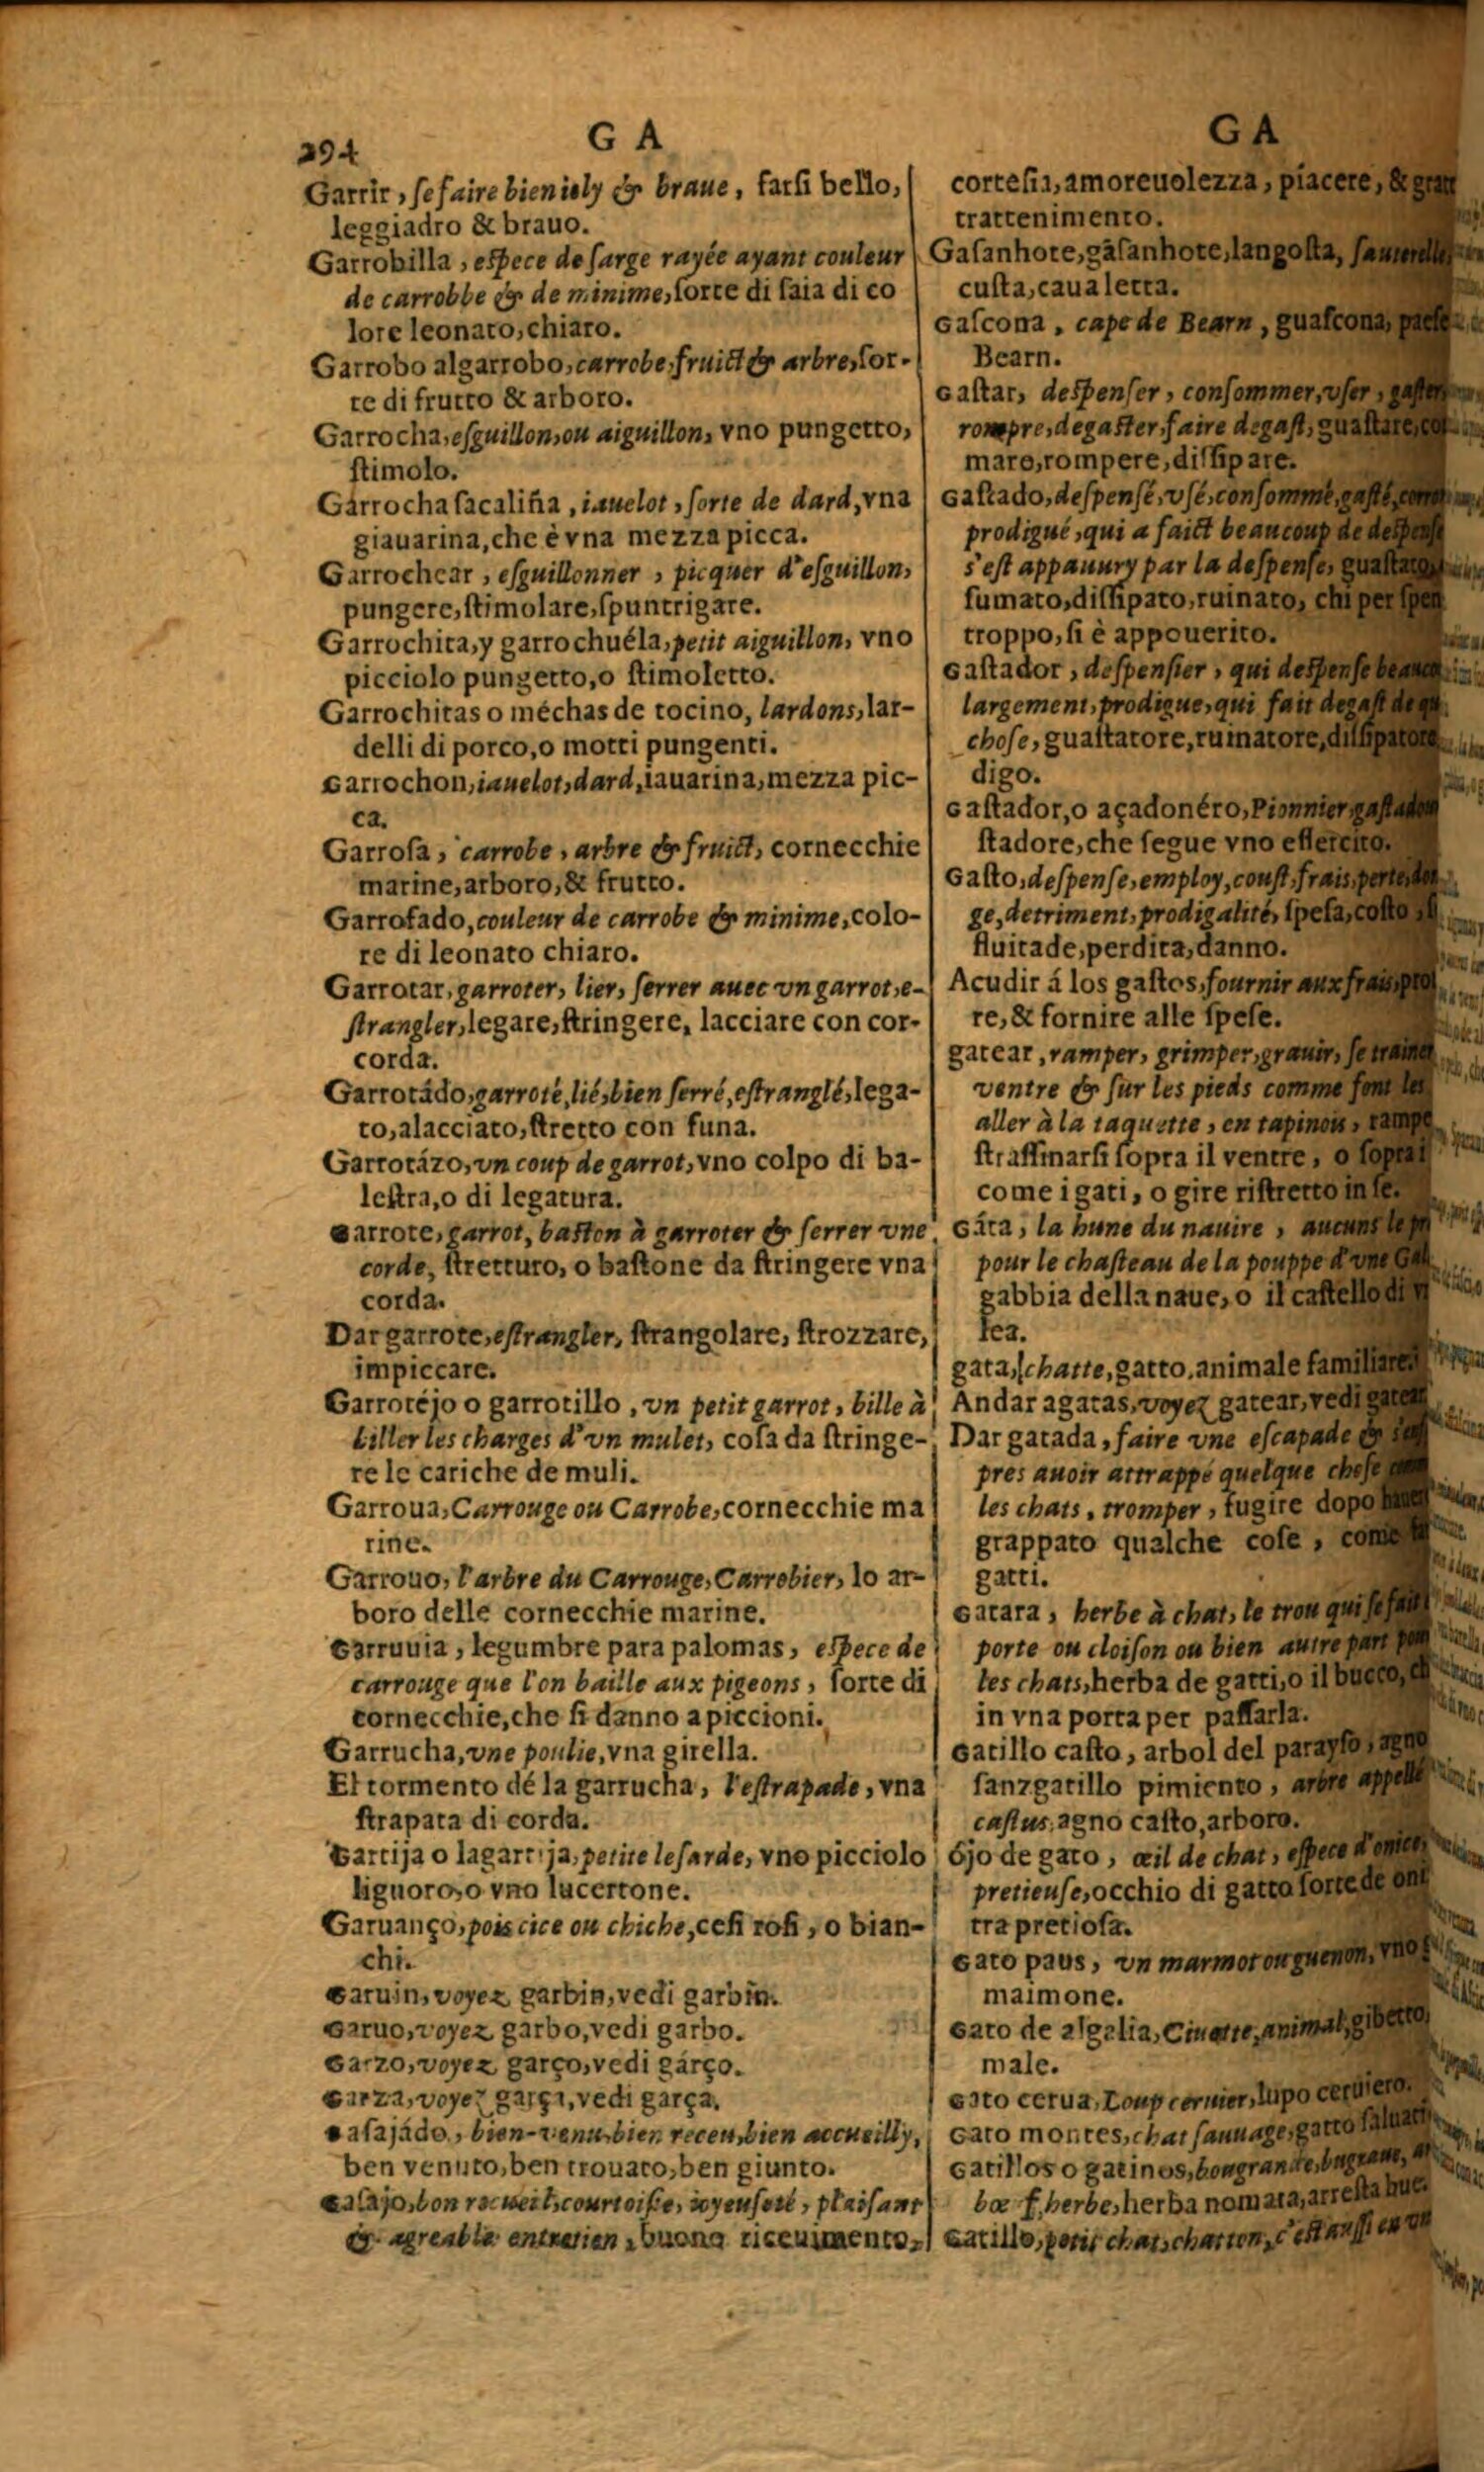 294
G A
G A
Garrir, ſe faire bien ioly & braue, farſi bello,
leggiadro & brauo.
Garrobilla, eſpece de ſarge rayée ayant couleur
de carrobbe & de minime, ſorte di ſaia di co
lore leonato, chiaro.
Garrobo algarrobo, carrobe, fruict & arbre, ſor-
te di frutto & arboro.
Garrocha, eſguillon, ou aiguillon, vno pungetto,
ſtimolo.
Garrocha ſacaliña, iauelot, ſorte de dard, vna
giauarina, che è vna mezza picca.
Garrochear, eſguillonner, picquer d'eſguillon,
pungere, ſtimolare, ſpuntrigare.
Garrochita, y garrochuéla, petit aiguillon, vno
picciolo pungetto, o ſtimoletto.
Garrochitas o méchas de tocino, lardons, lar-
delli di porco, o motti pungenti.
Garrochon, iauelot, dard, iauarina, mezza pic-
ca.
Garroſa, carrobe, arbre & fruict, cornecchie
marine, arboro, & frutto.
Garroſado, couleur de carrobe & minime, colo-
re di leonato chiaro.
Garrotar, garroter, lier, ſerrer auec vn garrot, e-
ſtrangler, legare, ſtringere, lacciare con cor-
corda.
Garrotádo, garroté, lié, bien ſerré, eſtranglé, lega-
to, alacciato, ſtretto con funa.
Garrotázo, vn coup de garrot, vno colpo di ba-
leſtra, o di legatura.
Garrote, garrot, baſton à garroter & ſerrer vne
corde, ſtretturo, o baſtone da ſtringere vna
corda.
Dar garrote, eſtrangler, ſtrangolare, ſtrozzare,
impiccare.
Garrotéjo o garrotillo, vn petit garrot, bille à
biller les charges d'vn mulet, coſa da ſtringe-
re le cariche de muli.
Garroua, Carrouge ou Carrobe, cornecchie ma
rine.
Garrouo, l'arbre du Carrouge, Carrobier, lo ar-
boro delle cornecchie marine.
Garruuia, legumbre para palomas, eſpece de
carrouge que l'on baille aux pigeons, ſorte di
cornecchie, che ſi danno a piccioni.
Garrucha, vne poulie, vna girella.
El tormento dé la garrucha, l'eſtrapade, vna
ſtrapata di corda.
Gartija o lagartija, petite leſarde, vno picciolo
liguoro, o vno lucertone.
Garuanço, pois cice ou chiche, ceſi roſi, o bian-
chi.
Garuin, voyez garbin, vedi garbin.
Garuo, voyez garbo, vedi garbo.
Garzo, voyez garço, vedi gárço.
Garza, voyez garça, vedi garça.
Gaſajádo, bien-venu, bien receu, bien accueilly,
ben venuto, ben trouato, ben giunto.
Gaſajo, bon recueil, courtoiſie, ioyeuſeté, plaiſant
& agreable entretien, buono riceuimento,
corteſia, amoreuolezza, piacere, & grat
trattenimento.
Gaſanhote, gáſanhote, langoſta, ſauterelle,
cuſta, caualetta.
Gaſcona, cape de Bearn, guaſcona, paeſe
Bearn.
Gaſtar, deſpenſer, conſommer, vſer, gaſter,
rompre, degaſter, faire degaſt, guaſtare, con
mare, rompere, diſſipare.
Gaſtado, deſpenſé, vſé, conſommé, gaſté,
prodigué, qui a faict beaucoup de deſpenſe
s'eſt appauury par la deſpenſe, guaſtato,
ſumato, diſſipato, ruinato, chi per ſpen
troppo, ſi è appouerito.
Gaſtador, deſpenſier, qui deſpenſe beauco
largement, prodigue, qui fait degaſt de qu
choſe, guaſtatore, ruinatore, diſſipatore,
digo.
Gaſtador, o açadonéro, Pionnier, gaſtadou
ſtadore, che ſegue vno eſſercito.
Gaſto, deſpenſe, employ, couſt, frais, perte, dom
ge, detriment, prodigalité, ſpeſa, coſto,
fluitade, perdita, danno.
Acudir á los gaſtos, fournir aux frais,
re, & fornire alle ſpeſe.
gatear, ramper, grimper, grauir, ſe trainer
ventre & ſur les pieds comme font les
aller à la taquette, en tapinois, rampe
ſtraſſinarſi ſopra il ventre, o ſopra i
come i gati, o gire riſtretto in ſe.
Gáta, la hune du nauire, aucuns le
pour le chaſteau de la pouppe d'vne Gal
gabbia della naue, o il caſtello di
lea.
gata, chatte, gatto, animale familiare.
Andar a gatas, voyez gatear, vedi gatear
Dar gatada, faire vne eſcapade &
pres auoir attrappé quelque choſe
les chats, tromper, fugire dopo hauer
grappato qualche coſe, come
gatti.
Gatara, herbe à chat, le trou qui ſe fait
porte ou cloiſon ou bien autre part pour
les chats, herba de gatti, o il bucco, ch
in vna porta per paſſarla.
Gatillo caſto, arbol del parayſo, agno
ſanzgatillo pimiento, arbre appellé
caſtus, agno caſto, arboro.
ójo de gato, œil de chat, eſpece d'onice,
pretieuſe, occhio di gatto ſorte de oni
tra pretioſa.
Gato paus, vn marmot ou guenon, vno
maimone.
Gato de algalia, Ciuette, animal, gibetto,
male.
Gato cerua, Loup ceruier, lupo ceruiero.
Gato montes, chat ſauuage, gatto ſaluati
Gatillos o gatinos, bougrande, bugrane,
bœ f, herbe, herba nomata, arreſta bue.
Gatillo, petit chat, chatton, c'eſt auſſi en vn